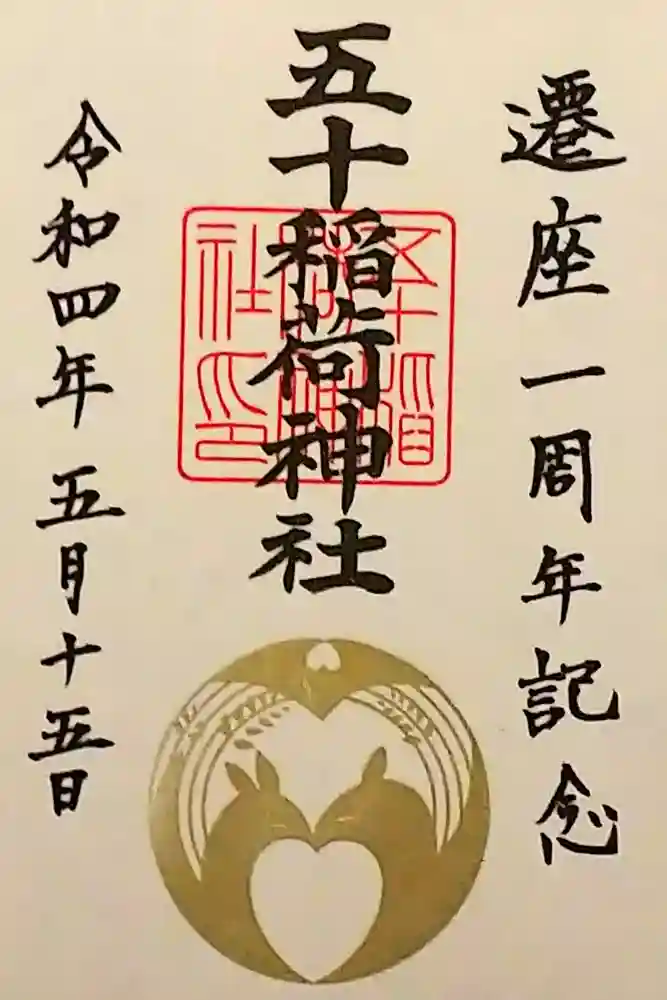 遷座一周年記念
五十稲荷神社
五十稲荷神社印
令和四年 五月十五日